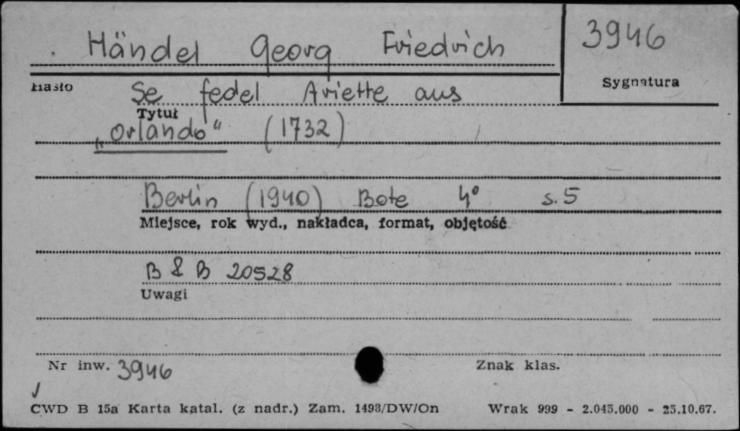 Händel Georg Friedrich 3946
Hasło Sygnatura
Se fedel Ariette aus
Tytuł
„Orlando“ (1732)
Berlin (1940) Bote 4° s. 5
Miejsce, rok wyd., nakładca, format, objętość
B & B 20528
Uwagi
Nr inw. 3946 Znak klas.
CWD B 15a Karta katal. (z nadr.) Zam. 1493/DW/On Wrak 999 - 2.045.000 - 25.10.67.